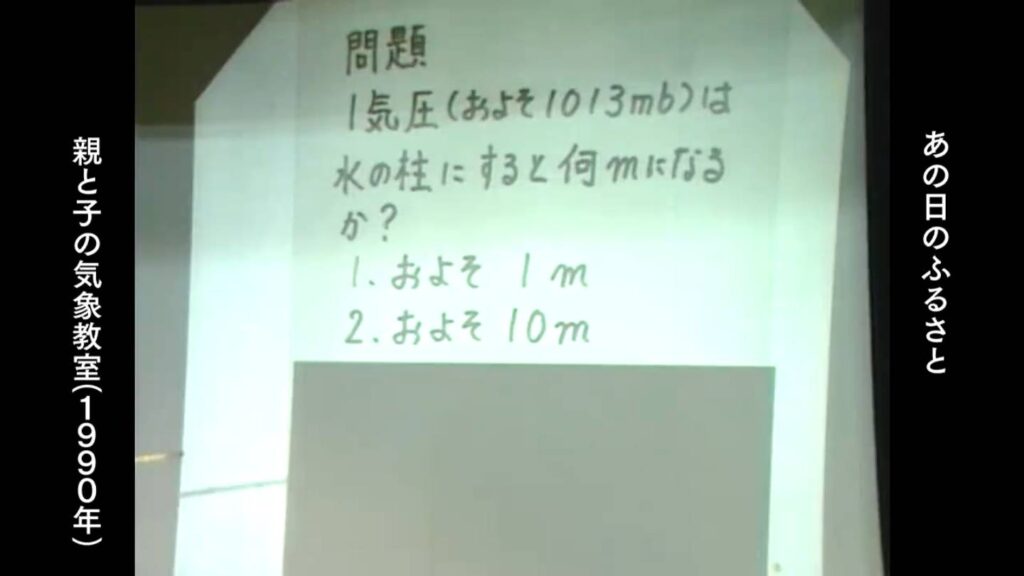 あの日のふるさと
問題
1気圧(およそ1013mb)は
水の柱にすると何mになる
か?
1. およそ 1m
2. およそ 10m
親と子の気象教室(1990年)